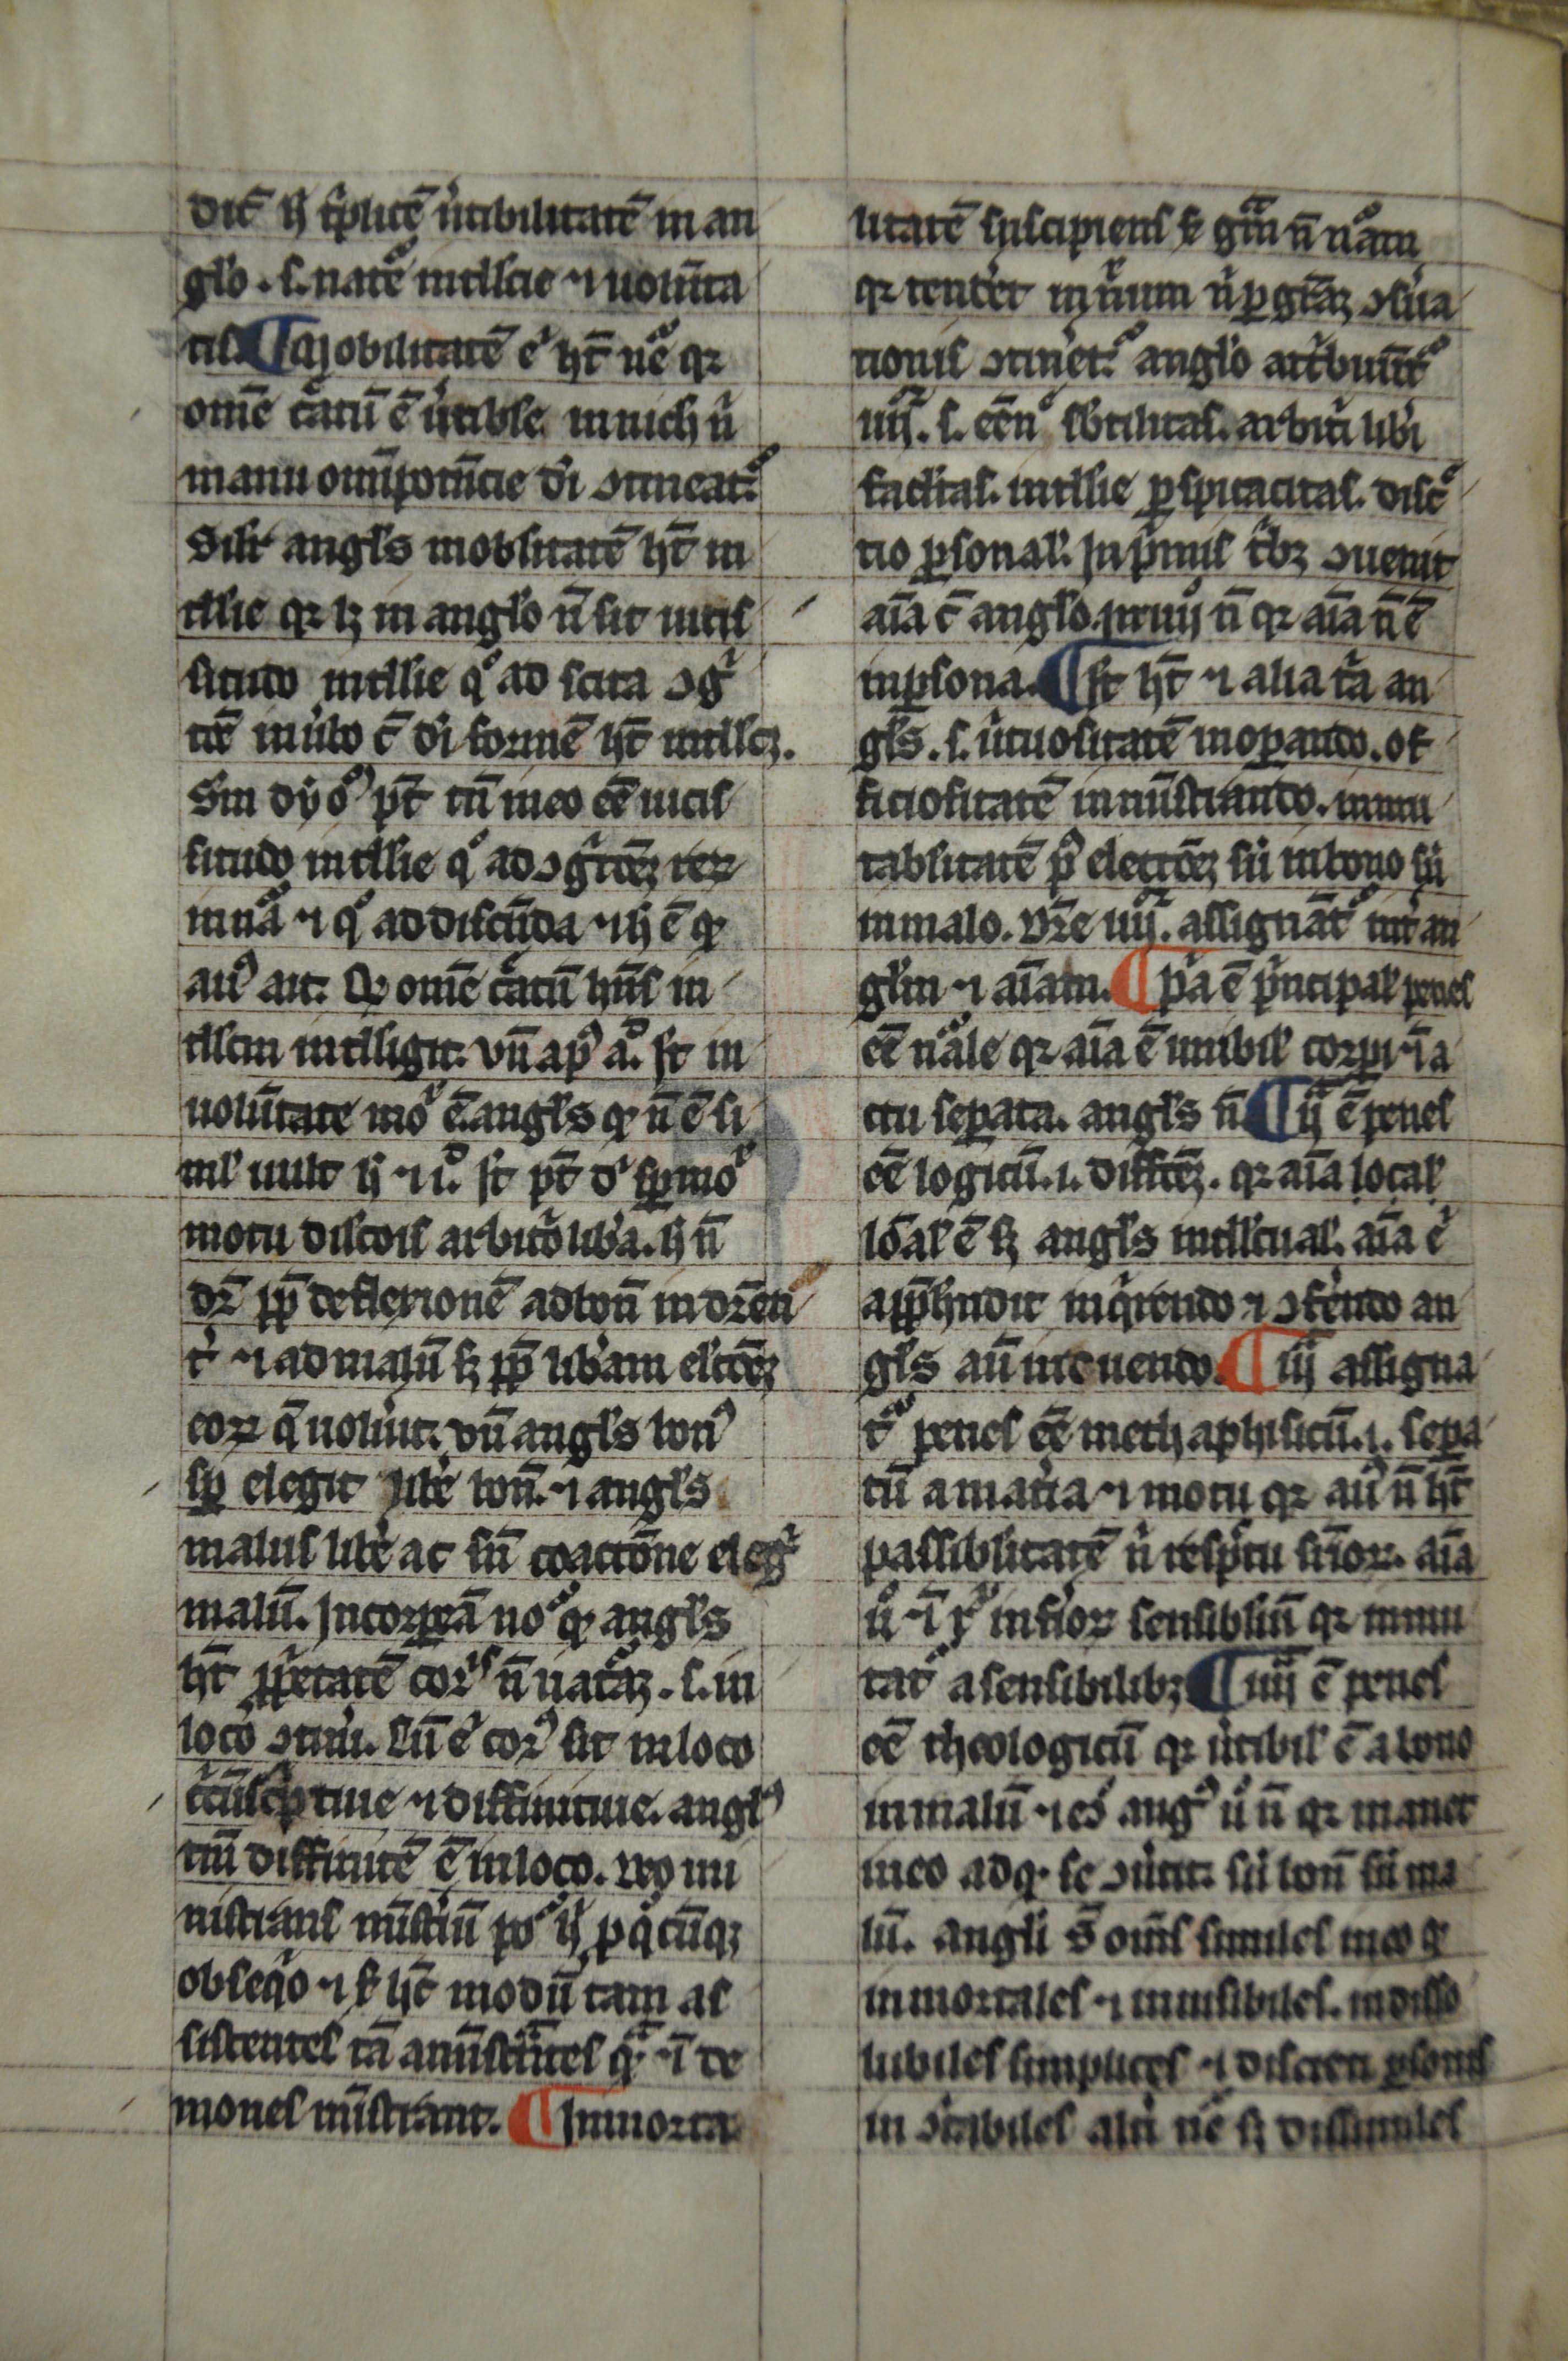 dic̄ ħ ṡplicē ũtibilitatē in an
glo . s. nāte intłłcie ⁊ uolūta
tis ¶ Mobilitatē ē hт̄ nē qꝛ
om̄e c̃atū ē ũtible in nich n̄
manu omīpotn̄cie dī ꝯtineat᷑
Silr angłs mobłitatē hт̄ in
tłłie qꝛ lꝫ in angło n̄ sit uicis
situdo intłłie qͦ ad scita ꝯg̃
tōē in ũbo c̄ dī formē hт̄ intłłcꝫ.
Sm dẏoꝰ pт̄ tn̄ in eo eē uicis
situdo intłłie qͦ ad ꝯg̃tōēꝫ reꝝ
in nã ⁊ qͦ ad discn̄da ⁊ ħ ē qꝛ
auꝰ ait. Qꝛ om̄e c̃atū hn̄s in
tłłcm intelligit. vn̄ apꝰ aͦ. st in
uolūtate moͬ ē. angłs qꝛ n̄ ē si
mł uult ħ ⁊ ıͦı. st pт̄ dͬ sꝑ moͬ
motu discōis arbit̃o lib̃a. ħ n̄
dr̄ ꝓp̄ deflexionē ad bon̄ indr̄en
t̃ ⁊ ad malū sꝫ ꝓp̄ lib̃am elcōēꝫ
eoꝝ q̄ uoluit. vn̄ angłs bonꝰ
sꝑ elegit libe bon̄ ⁊ angłs
malus libe ac sn̄ coactōne elegͥ
malū. Incorꝑeā noͦ qꝛ angłs
hт̄ ꝓp̃etatē corͥs n̄ nat̃āꝫ . s. in
loco ꝯtin̄i. Cū ē corꝰ sit in loco
c̃cūsc̃ptiue ⁊ diffinitiue. anglꝰ
tm̄ diffinitē ē in loco. vꝛo mi
nistrans mīst̃iū poͬ ħ ꝑ q̃cūqꝫ
obseq̃o ⁊ s̄ hт̄ modū tam as
sistentes tā amīstrātes qͣ. ⁊ ı̄ de
mones mīstrant. ¶ Inmorta
litatē suscipiens s̄ gr̃am n̄ nāam
qꝛ tendet in nichm n̄ ꝑ gr̄aꝫ ꝯs̃ua
tionis ꝯtinet᷑ angło att̃buūt᷑
iiijͬ. s. eēn͛ sb̃tilitas. arbit̃i lib̃i
faclitas. intłłie ꝑspicacitas. disc̄
tio ꝑsonał. In p̃mis tͥbꝫ ꝯuenit
aīa c̄ angło. in iiij n̄ qꝛ aīa n̄ ē
in ꝑsona. ¶ st hт̄ ⁊ alia t̃a an
głs. s. ũtuositatē in oꝑando. of
ficiositatē in mīstrando. inmu
tabłitatē pꝰ electōēꝫ siũ in bono siũ
in malo. Dr̄e iiijͬ. assignāt᷑ int̃ an
głm ⁊ aīam. ¶ p̃a ē p̃ncipał penes
eē nāale qꝛ aīa ē unibił corpi ⁊ ı̄ a
ctu seꝑata. angłs n̄. ¶ ij ē penes
eē logicū .i. diffrēꝫ. qꝛ aīa local̸
lōał ē sꝫ angłs intłłcual̸. aīa ē
apꝓhndit inq̃rendo ⁊ ꝯferndo an
głs aū intuendo. ¶ iij assigna
t᷑ penes eē methaphisicū .i. seꝑa
tū a mat̃ia ⁊ motu qꝛ aũ n̄ hт̄
passibłitatē n̄ respc̃tu su̇ioꝝ. aīa
ũͦ ⁊ ı̄ rͦ inf̃ioꝝ sensibliū qꝛ inmu
tat᷑ a sensibilibꝫ ¶ iiij ē penes
eē theologicū qꝛ ũtibił ē a bono
in malū ⁊ ecͦ. angꝰ ũͦ n̄ qꝛ manet
in eo ad qͦ se ꝯũtit siũ bon̄ siũ ma
lū. angli s̄ om̄s similes in eo qꝛ
inmortales ⁊ inuisibiles. indisso
lubiles simplices ⁊ discreti ꝑsonis
in ꝯtabiles alti nē sꝫ dissimiles